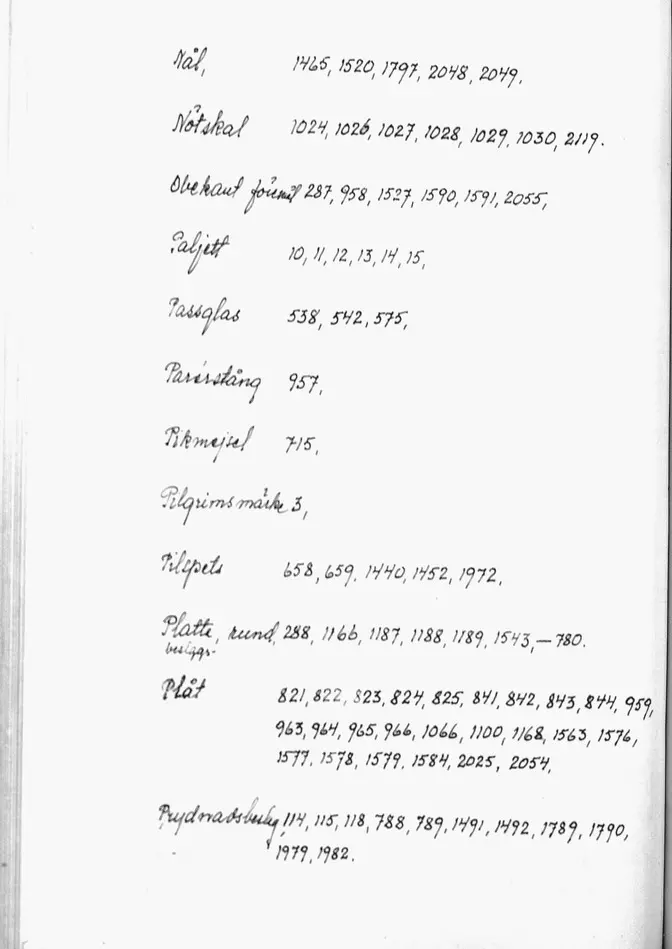 Nål, 1465, 1520, 1797, 2048, 2049.
Nötskal 1024, 1026, 1027, 1028, 1029, 1030, 2119.
Obekant föremål 287, 958, 1527, 1590, 1591, 2055,
Paljett 10, 11, 12, 13, 14, 15,
Passglas 538, 542, 575,
Parérstång 957,
Pikmejsel 715,
Pilgrimsmärke 3,
Pilspets 658, 659, 1440, 1452, 1972,
Platta, rund, 288, 1166, 1187, 1188, 1189, 1543,—780.
Plåt 821, 822, 823, 824, 825, 841, 842, 843, 844, 959,
963, 964, 965, 966, 1066, 1100, 1168, 1563, 1576,
1577, 1578, 1579, 1584, 2025, 2054,
Prydnadsbeslag, 114, 115, 118, 788, 789, 1491, 1492, 1789, 1790,
1979, 1982.